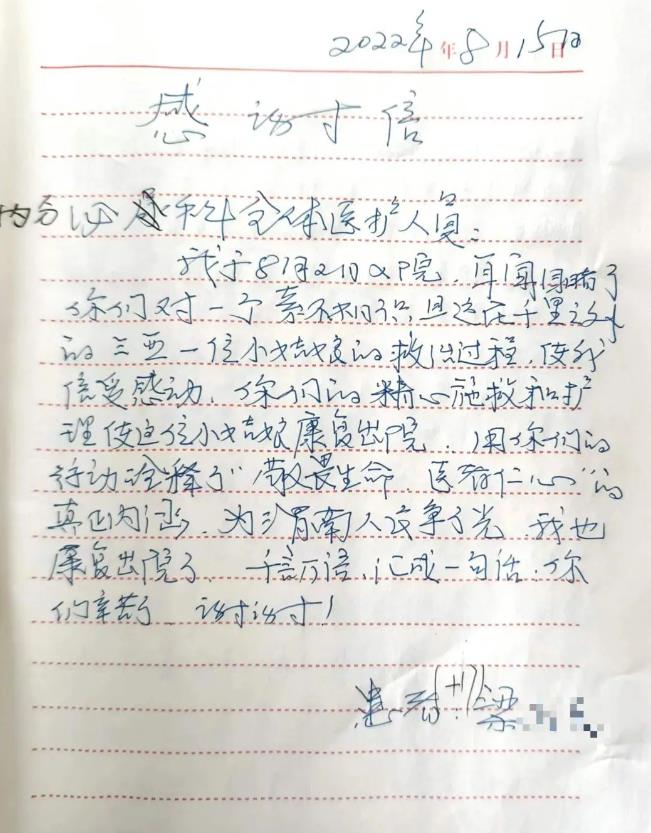 2022年年8月15日
感谢信
内分泌科全体医护人员：
我于8月2日入院，耳闻目睹了
你们对一个素不相识且远在千里之外
的三亚一位小姑娘的救治过程，使我
倍受感动，你们的精心施救和护
理使这位小姑娘康复出院，用你们的
行动诠释了“敬畏生命，医者仁心”的
真正内涵，为渭南人民争了光，我也
康复出院了，千言万语，汇成一句话，你
们辛苦了 谢谢！
患者（+17）梁